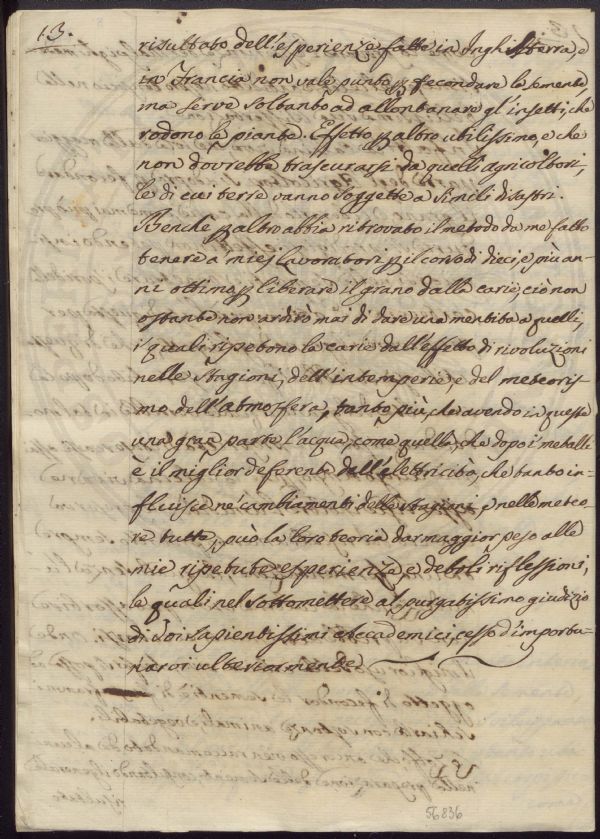 13.
risultato dell'esperienze fatte in Inghilterra, e
in Francia non vale punto p fecondare le semente,
ma serve soltanto ad allontanare gl'insetti, che
rodono le piante. Effetto p altro utilissimo, e che
non dovrebbe trascurarsi da quelli agricoltori,
le di cui terre vanno soggette a simili disastri.
Benchè p altro abbia ritrovato il metodo da me fatto
tenere a miej Lavoratori p il corso di dieci, e più an-
ni ottimo p liberare il grano dalla carie, ciò non
ostante non ardirò mai di dare una mentita a quelli,
i quali ripetono la carie dall'effetto di rivoluzioni
nelle stagioni, dell'intemperie, e del meteoris-
mo dell'atmosfera, tanto più, che avendo in queste
una gran parte l'acqua, come quella, che dopo i metalli
è il miglior deferente dell'elettricità, che tanto in-
fluisce ne' cambiamenti delle stagioni, e nelle meteo-
re tutte, può la loro teoria dar maggior peso alle
mie ripetute esperienze, e deboli riflessioni,
le quali nel sottomettere al purgatissimo giudizio
di Voi sapientissimi Accademici, cesso d'importu-
narvi ulteriormente
56836